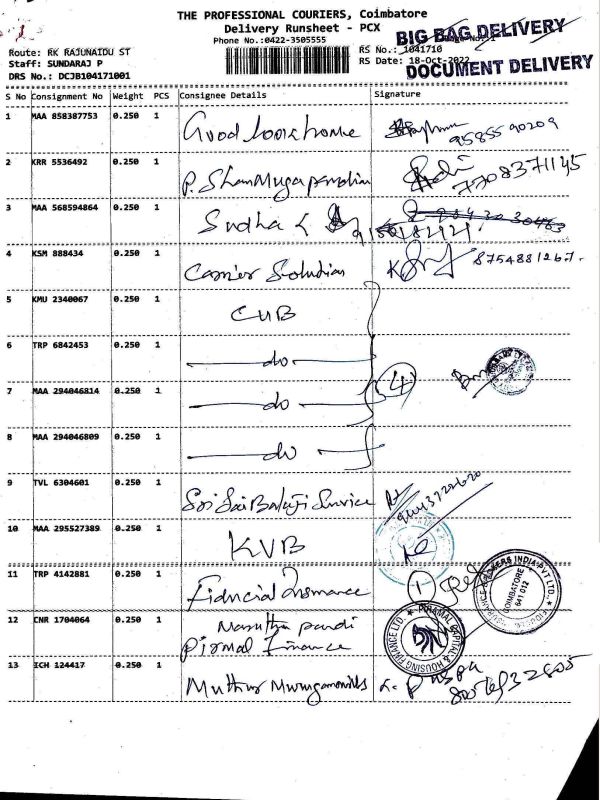 THE PROFESSIONAL COURIERS, Coimbatore
Delivery Runsheet - PCX
BIG BAG DELIVERY
Phone No.:0422-3505555
Route: RK RAJUNAIDU ST
RS No.: 1041710
Staff: SUNDARAJ P
RS Date: 18-Oct-2022
DOCUMENT DELIVERY
DRS No.: DCJB104171001
S No Consignment No Weight PCS Consignee Details Signature
1 MAA 858387753 0.250 1 Good look home 9585590209
2 KRR 5536492 0.250 1 P. Shanmugapandian 7708371145
3 MAA 568594864 0.250 1 Sudha
4 KSM 888434 0.250 1 Carrier Solution 8754881267
5 KMU 2340067 0.250 1 CUB
6 TRP 6842453 0.250 1 do
7 MAA 294046814 0.250 1 do 4
8 MAA 294046809 0.250 1 do
9 TVL 6304601 0.250 1 Sri Sai Balaji Service
10 MAA 295527389 0.250 1 KVB
11 TRP 4142881 0.250 1 Fiducial Insurance 1
COIMBATORE
641 012
12 CNR 1704064 0.250 1
Piramal Finance
PIRAMAL CAPITAL & HOUSING FINANCE LTD.
13 ICH 124417 0.250 1